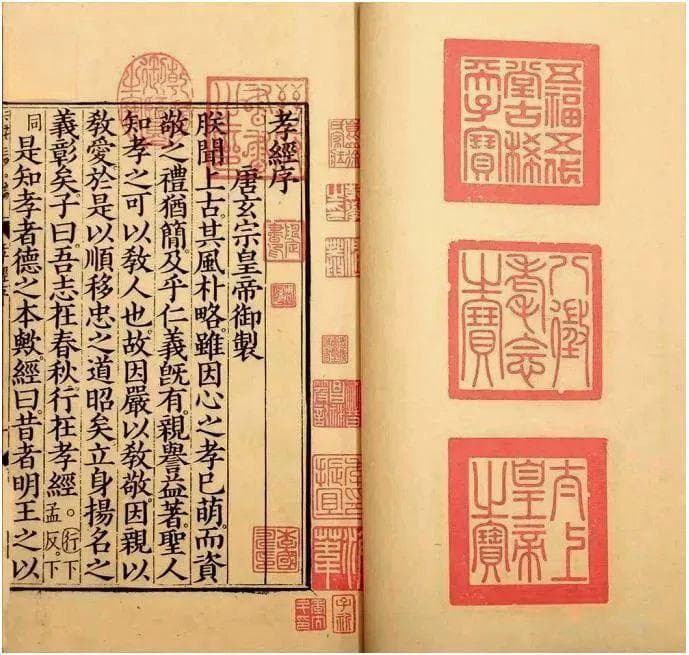 五福五代堂古稀天子寶
八徵耄念之寶
太上皇帝之寶
孝經序
唐玄宗皇帝御製
朕聞上古。其風朴略。雖因心之孝已萌。而資
敬之禮猶簡。及乎仁義旣有。親譽益著。聖人
知孝之可以敎人也。故因嚴以敎敬。因親以
敎愛。於是以順移忠之道昭矣。立身揚名之
義彰矣。子曰。吾志在春秋。行在孝經。行下孟反。下
同是知孝者德之本歟。經曰。昔者明王之以